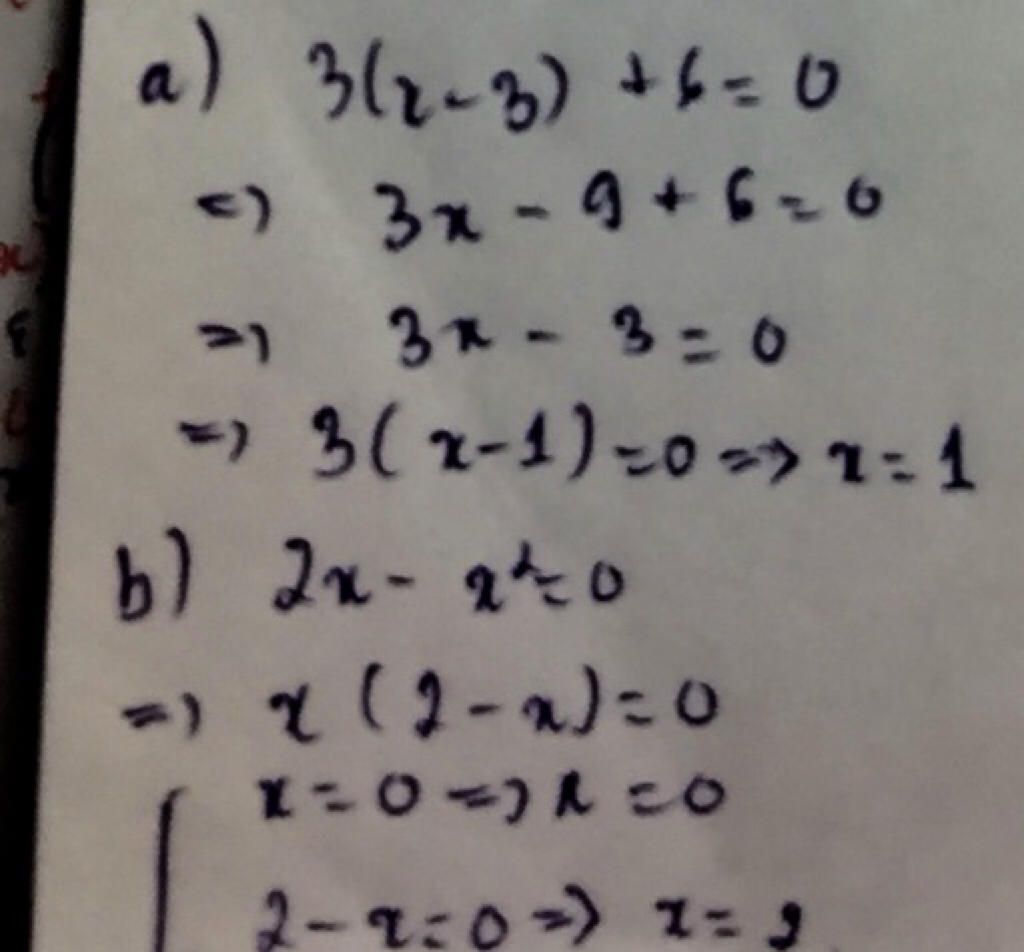 a) 3(x-3) + 6 = 0
<=> 3x - 9 + 6 = 0
=> 3x - 3 = 0
=> 3(x-1) = 0 => x = 1
b) 2x - x² = 0
=> x(2-x) = 0
x = 0 => x = 0
2-x = 0 => x = 2